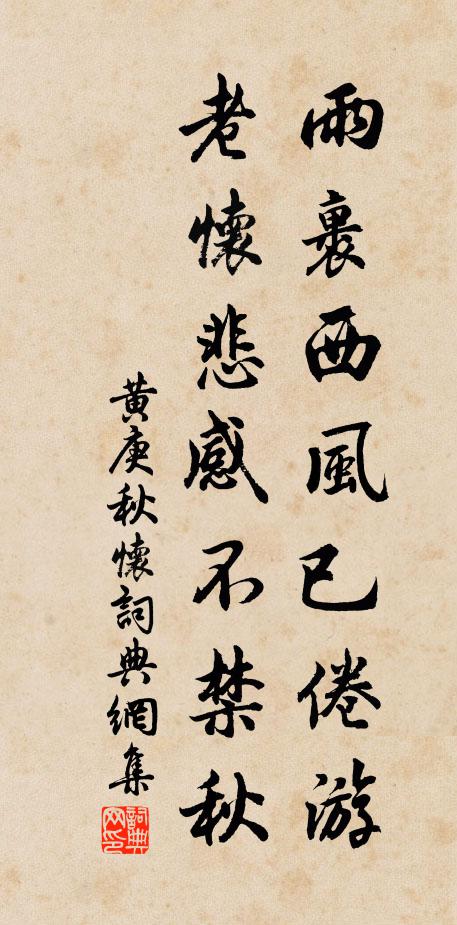 雨裏西風已倦游
老懷悲感不禁秋
黃庚秋懷詞典網集
詞典網印